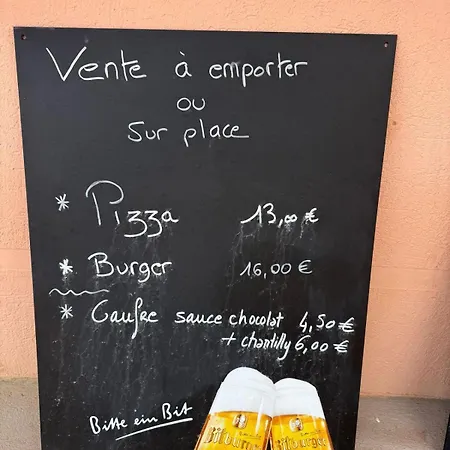 Vente à emporter
ou
Sur place
* Pizza 13,00 €
* Burger 16,00 €
* Gaufre sauce chocolat 4,50 €
+ chantilly 6,00 €
Bitte ein Bit
Bitburger Bitburger